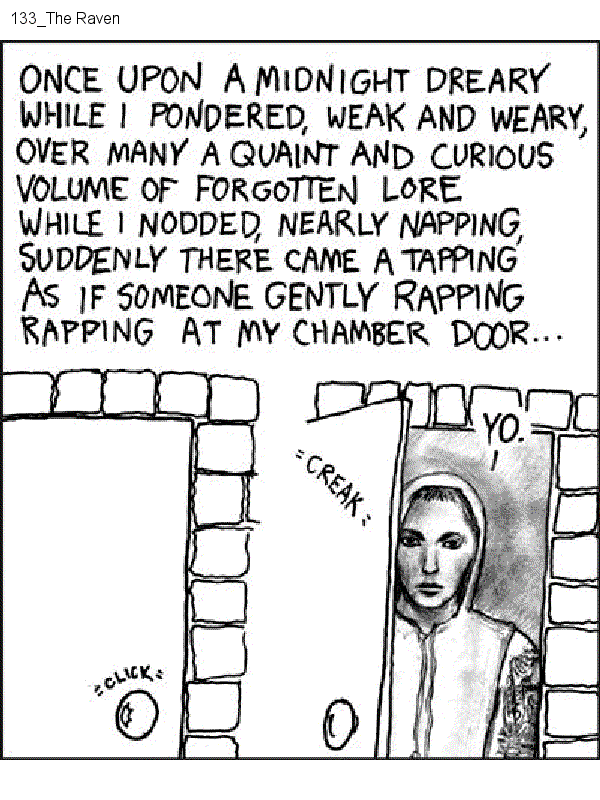 133_The Raven
ONCE UPON A MIDNIGHT DREARY
WHILE I PONDERED, WEAK AND WEARY,
OVER MANY A QUAINT AND CURIOUS
VOLUME OF FORGOTTEN LORE
WHILE I NODDED, NEARLY NAPPING,
SUDDENLY THERE CAME A TAPPING
AS IF SOMEONE GENTLY RAPPING
RAPPING AT MY CHAMBER DOOR...
CLICK
CREAK
YO.